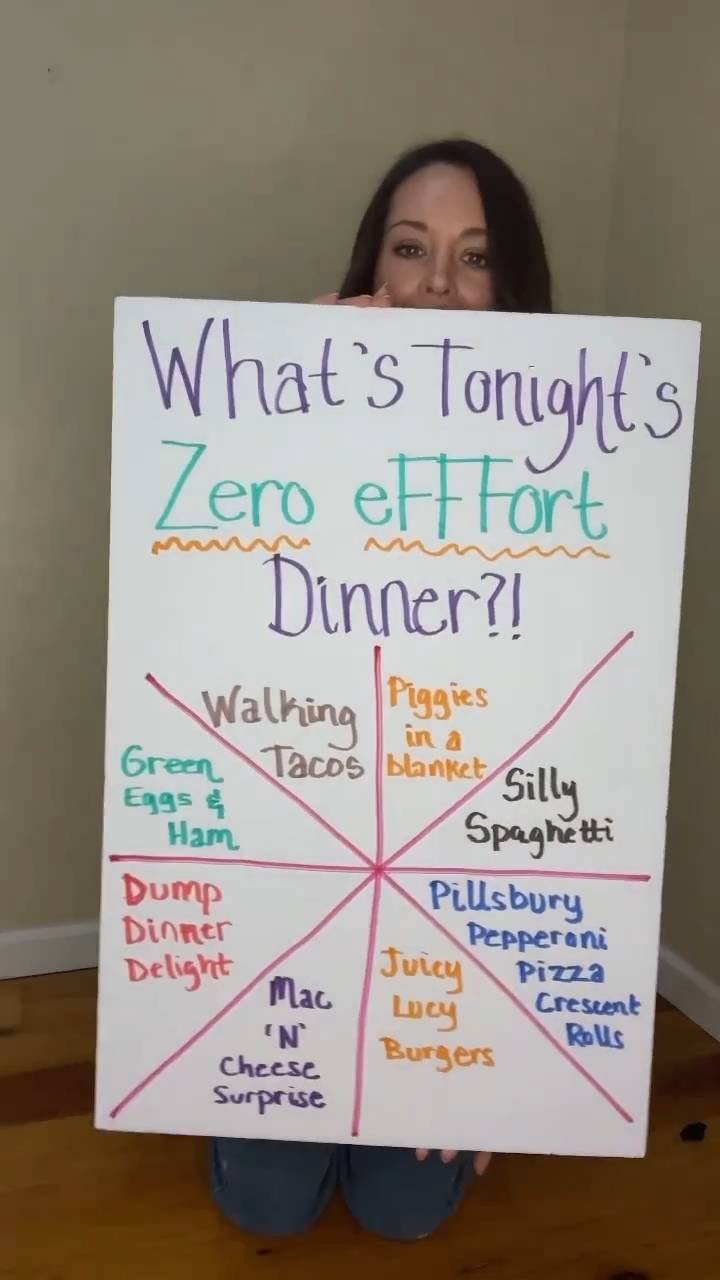 What's Tonight's
Zero eFFFort
Dinner?!
Walking
Tacos
Piggies
in a
blanket
Silly
Spaghetti
Pillsbury
Pepperoni
Pizza
Crescent
Rolls
Juicy
Lucy
Burgers
Mac
'N'
Cheese
Surprise
Dump
Dinner
Delight
Green
Eggs &
Ham